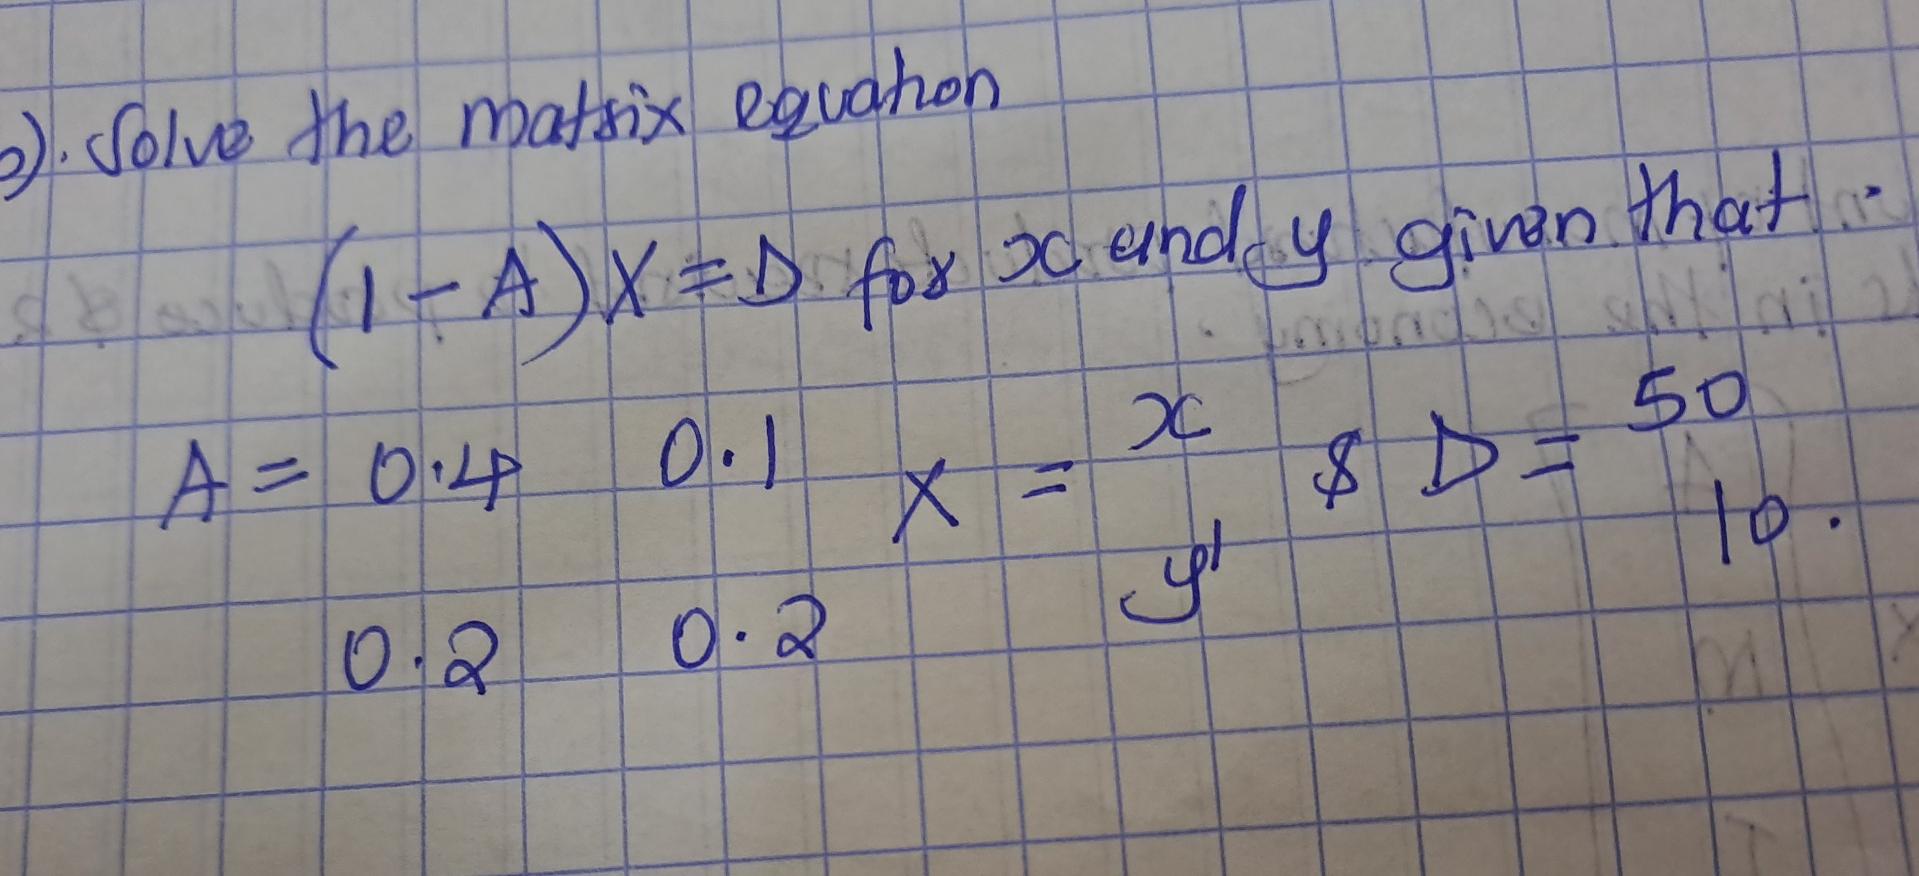 ). Solve the matrix equation
(1-A)X=D for x and y given that.
A= 0.4 0.1 X = x $ D= 50
y' 10.
0.2 0.2